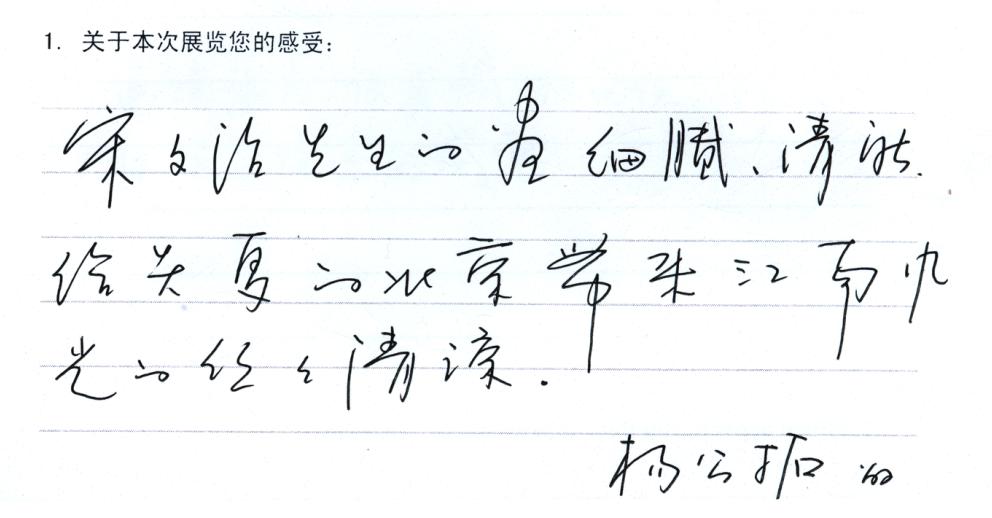 1. 关于本次展览您的感受：
宋文治先生的画细腻、清新.
给炎夏的北京带来江南风
光的丝丝清凉.
杨公拓